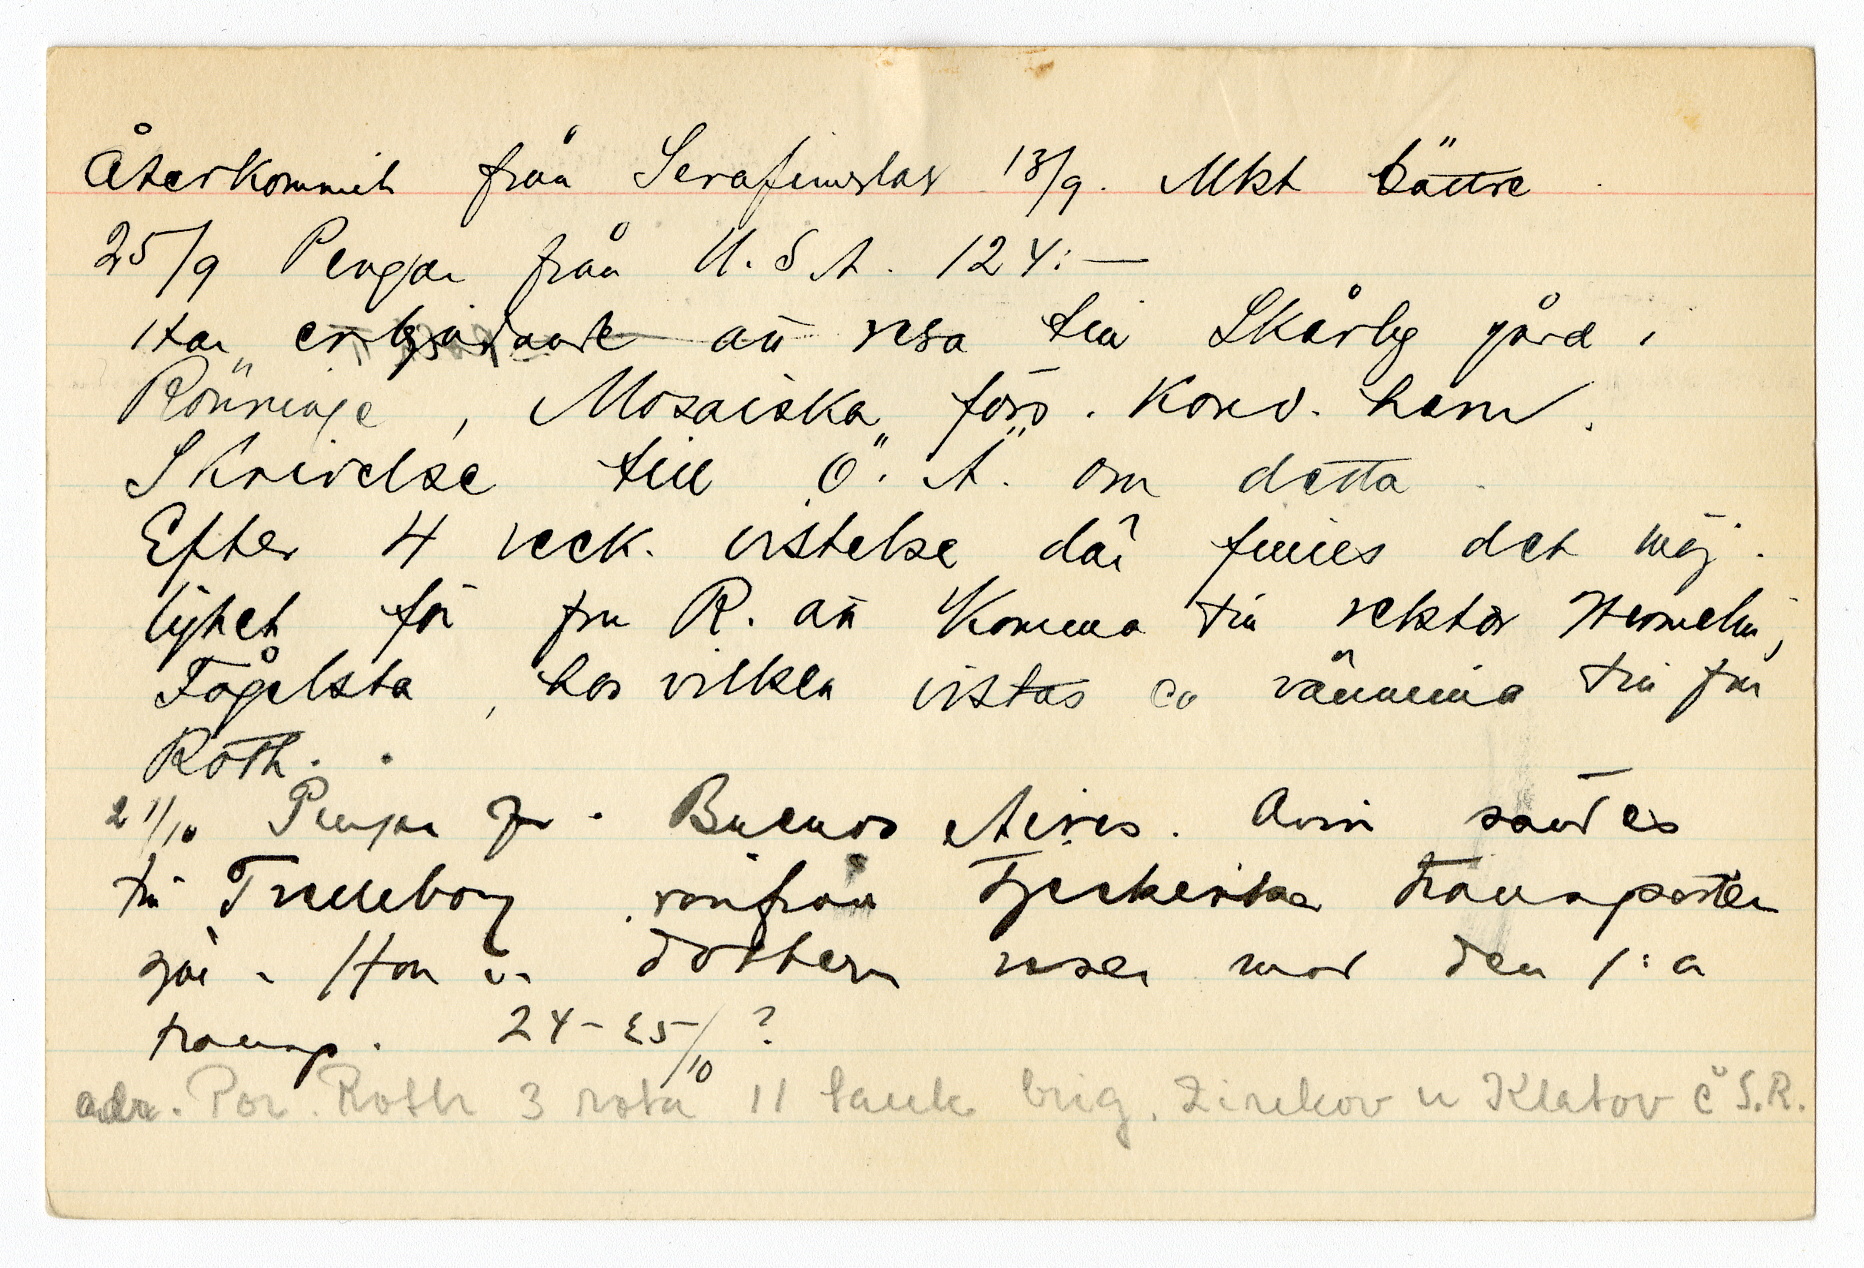 Återkommit från Serafimerlas 13/9. Mkt bättre.
25/9 Pengar från U.S.A. 124:—
Har erbjudande att resa till Skårby gård i
Rönninge, Mosaiska förs. Konv. hem.
Skrivelse till Ö.A. om detta.
Efter 4 veck. vistelse där finnes det möj-
lighet för fru R. att komma till rektor Hermelin,
Fogelsta, hos vilken vistas en väninna till fru
Roth.
21/10 Pengar fr. Buenos Aires. Avin sändes
till Trelleborg varifrån Tjeckiska transporten
går. Hon o. dottern reser med den 1:a
transp. 24-25/10?
adr. Por. Roth 3 rota 11 tank brig. Zinkov u Klatov Č.S.R.